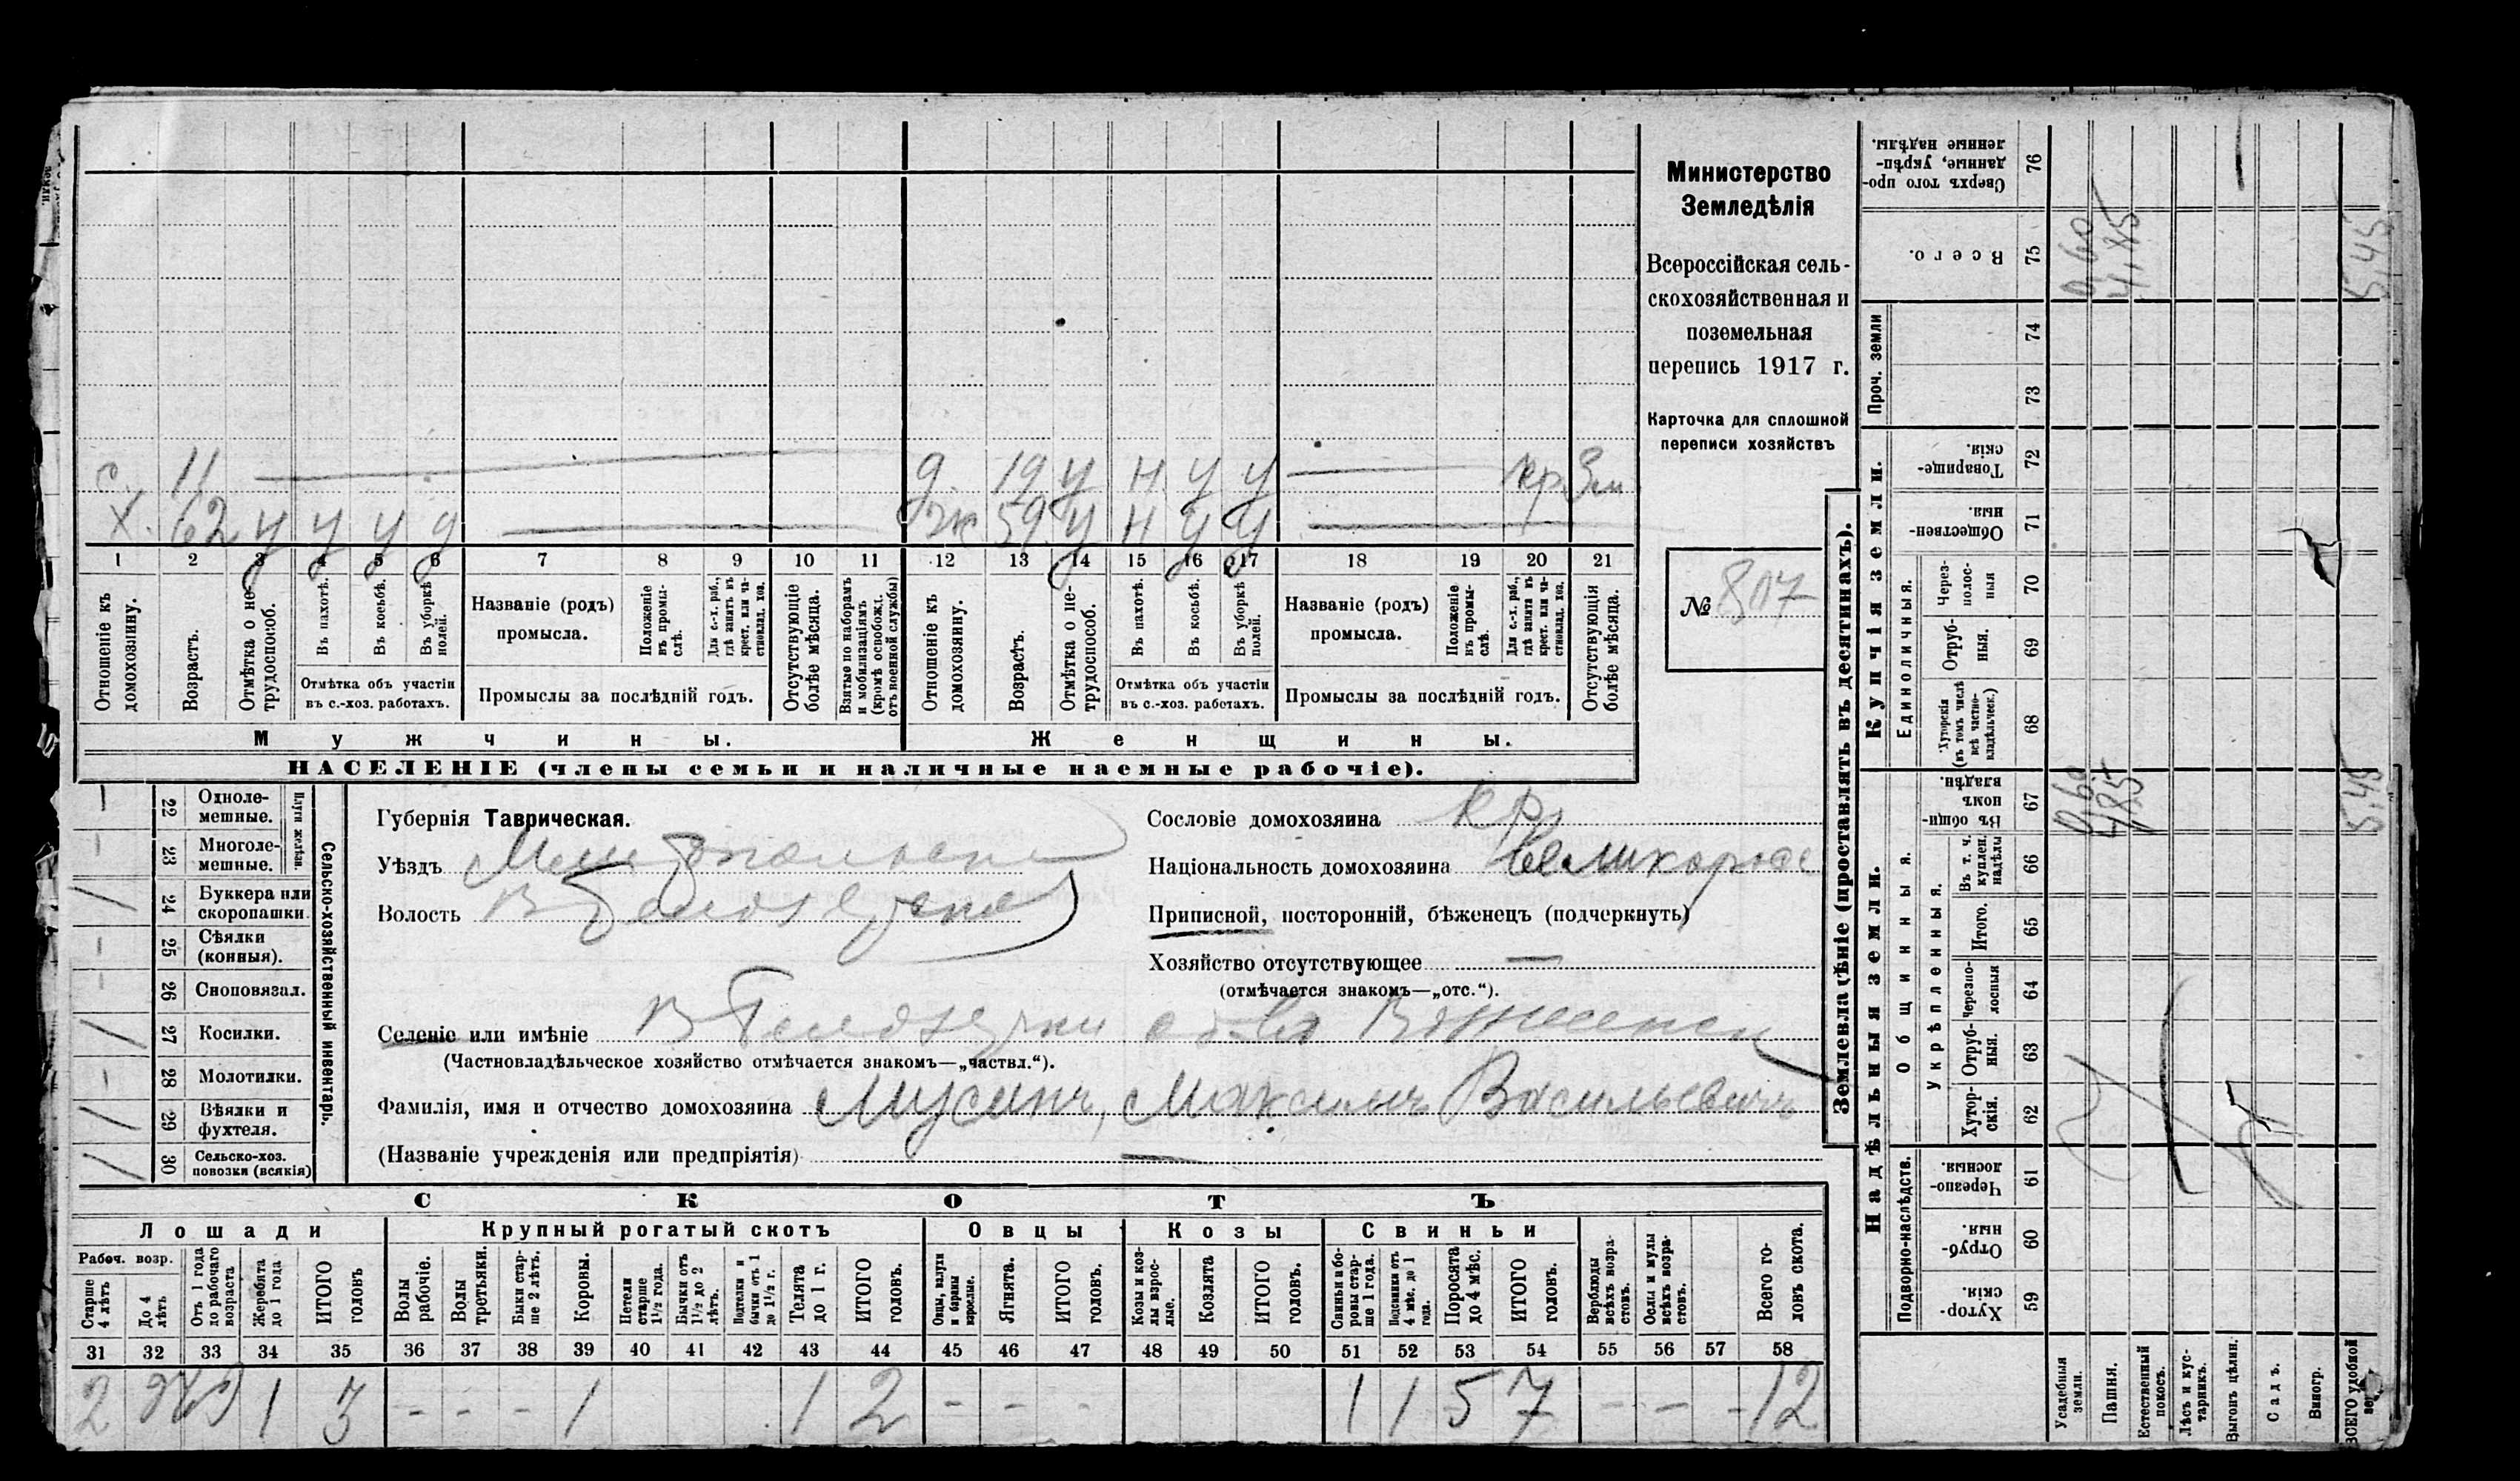 с. 11 — д. 19 у н у у — кр. Зм
х. 62 у у у у — ж 59 у н у у —
1 2 3 4 5 6 7 8 9 10 11 12 13 14 15 16 17 18 19 20 21
Отношеніе къ домохозяину.
Возрастъ.
Отмѣтка о не-
трудоспособ.
Въ пахотѣ.
Въ косьбѣ.
Въ уборкѣ
полей.
Отмѣтка объ участіи
въ с.-хоз. работахъ.
Названіе (родъ)
промысла.
Положеніе
въ промы-
слѣ.
Для с.-х. раб.,
гдѣ занятъ въ
крест. или ча-
стновлад. хоз.
Промыслы за послѣдній годъ.
Отсутствующіе
болѣе мѣсяца.
Взятые по наборамъ
и мобилизаціямъ
(кромѣ освобожд.
отъ военной службы)
Отношеніе къ
домохозяину.
Возрастъ.
Отмѣтка о не-
трудоспособ.
Въ пахотѣ.
Въ косьбѣ.
Въ уборкѣ
полей.
Отмѣтка объ участіи
въ с.-хоз. работахъ.
Названіе (родъ)
промысла.
Положеніе
въ промы-
слѣ.
Для с.-х. раб.,
гдѣ занята въ
крест. или ча-
стновлад. хоз.
Промыслы за послѣдній годъ.
Отсутствующія
болѣе мѣсяца.
Мужчины. Женщины.
НАСЕЛЕНІЕ (члены семьи и наличные наемные рабочіе).
Министерство
Земледѣлія
Всероссійская сель-
скохозяйственная и
поземельная
перепись 1917 г.
Карточка для сплошной
переписи хозяйствъ
№ 807
Сельско-хозяйственный инвентарь.
Плуги желѣзн.
— 22 Однолe-
мешные.
— 23 Многоле-
мешные.
/ 24 Буккера или
скоропашки.
— 25 Сѣялки
(конныя).
— 26 Сноповязал.
/ 27 Косилки.
— 28 Молотилки.
/ 29 Вѣялки и
фухтеля.
/ 30 Сельско-хоз.
повозки (всякія)
Губернія Таврическая.
Уѣздъ Мелитопольскій
Волость В Белозерская
Сословіе домохозяина кр.
Національность домохозяина великоросс
Приписной, посторонній, бѣженецъ (подчеркнуть)
Хозяйство отсутствующее —
(отмѣчается знакомъ—„отс.“).
Селеніе или имѣніе В Белозерки
(Частновладѣльческое хозяйство отмѣчается знакомъ—„частвл.“).
Фамилія, имя и отчество домохозяина Мусинъ, Максимъ Васильевичъ
(Названіе учрежденія или предпріятія) —
СКОТЪ
Лошади Крупный рогатый скотъ Овцы Козы Свиньи
Рабоч. возр.
Старше
4 лѣтъ
До 4
лѣтъ
Отъ 1 года
до рабочаго
возраста
Жеребята
до 1 года
ИТОГО
головъ
Волы
рабочіе.
Волы
третьяки.
Быки стар-
ше 2 лѣтъ.
Коровы.
Нетели
старше
1½ года.
Бычки отъ
1½ до 2
лѣтъ.
Подтелки и
бычки отъ 1
до 1½ г.
Телята
до 1 г.
ИТОГО
головъ.
Овцы, валухи
и бараны
взрослые.
Ягнята.
ИТОГО
головъ.
Козы и коз-
лы взрос-
лые.
Козлята
ИТОГО
головъ.
Свиньи и бо-
ровы стар-
ше 1 года.
Подсвинки отъ
4 мѣс. до 1
года.
Поросята
до 4 мѣс.
ИТОГО
головъ.
Верблюды
всѣхъ возра-
стовъ.
Ослы и мулы
всѣхъ возра-
стовъ.
Всего го-
ловъ скота.
31 32 33 34 35 36 37 38 39 40 41 42 43 44 45 46 47 48 49 50 51 52 53 54 55 56 57 58
2 1 3 - - - 1 1 2 - - - 1 1 5 7 - - - 12
Землевладѣніе (проставлять въ десятинахъ).
Купчія земли.
Надѣльныя земли.
Сверхъ того про-
данные, укрѣп-
ленные надѣлы.
76
Всего. 75 0,60 4,85 5,45
Проч. земли
74
73
Товарище-
скія.
72
Обществен-
ныя.
71
Единоличныя.
Через-
полос-
ныя
70
Отруб-
ныя.
69
Хуторскія
(въ томъ числѣ
всѣ частно-
владѣльческ.)
68
Общинныя.
Въ общи-
номъ
владѣн.
67 0,60 4,85 5,45
Укрѣпленныя.
Въ т. ч.
куплен.
надѣлы
66
Итого.
65
Черезпо-
лосныя
64
Отруб-
ныя.
63
Хутор-
скія.
62
Подворно-наслѣдств.
Черезпо-
лосныя.
61
Отруб-
ныя.
60
Хутор-
скія.
59
Усадебныя
земли.
Пашня.
Естественный
покосъ.
Лѣсъ и кус-
тарникъ.
Выгонъ цѣлин.
Садъ.
Виногр.
ВСЕГО удобной